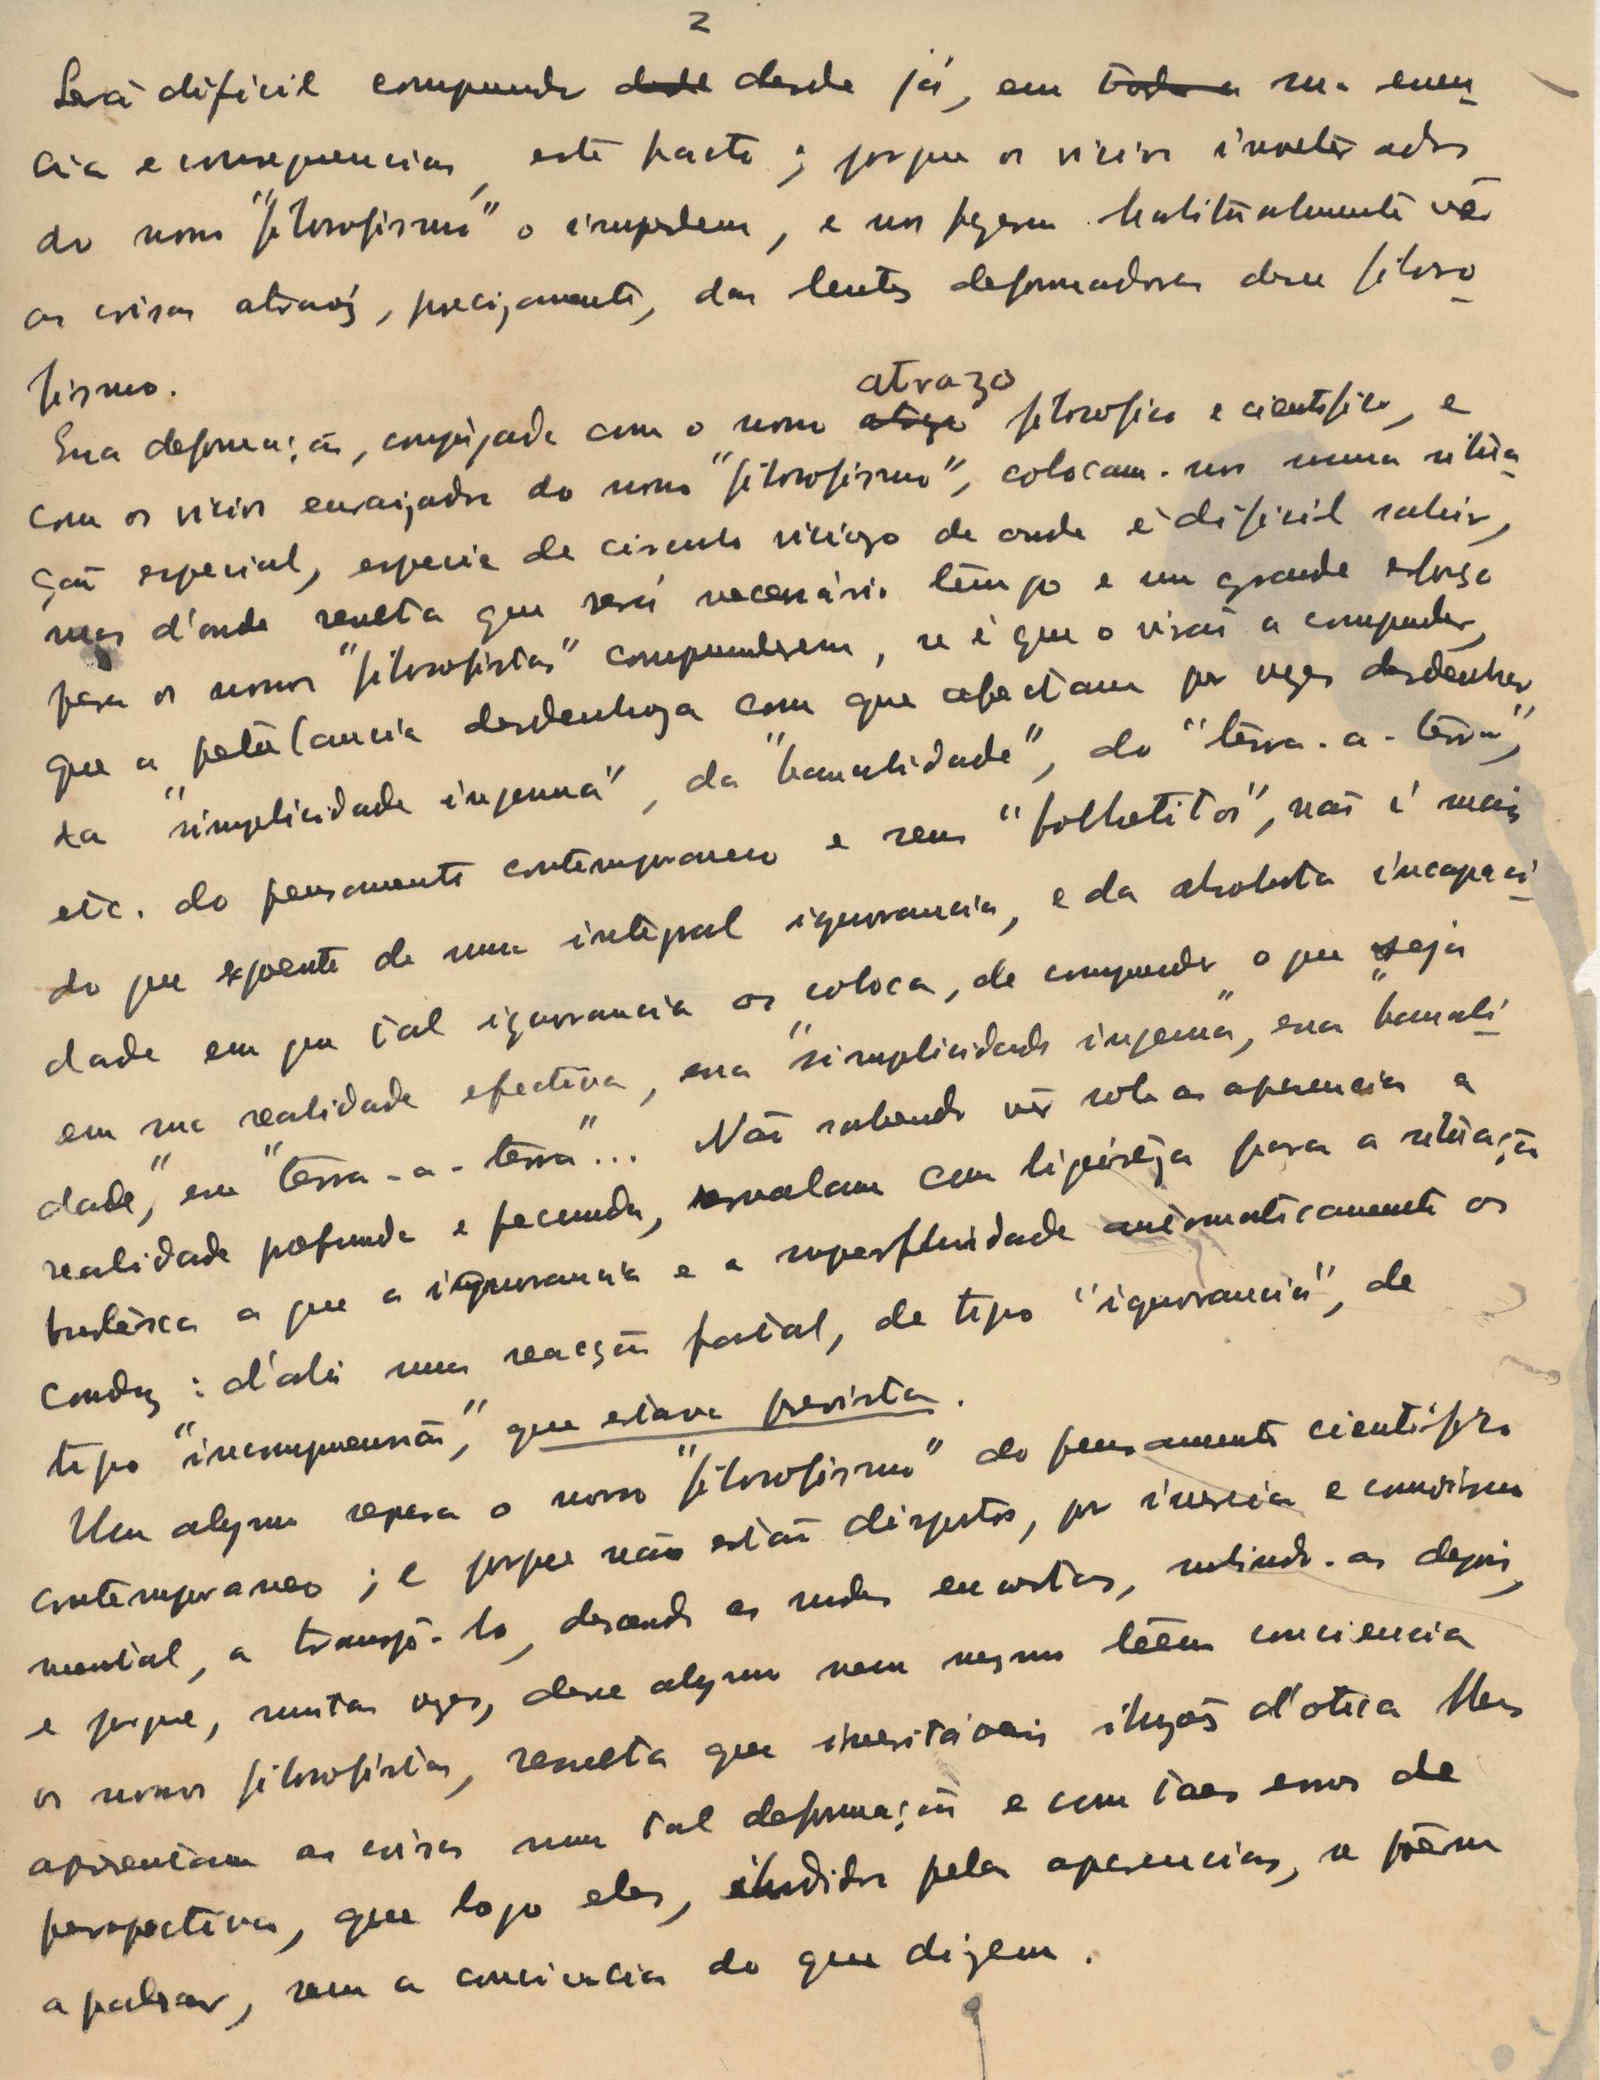 2
Será difícil compreender dede desde já, em toda a sua essen-
cia e consequencias, este facto; porque os vicios inveterados
do nosso "filosofismo" o impedem, e nos fazem habitualmente vêr
as coisas atravéz, precizamente, das lentes deformadoras desse filoso-
fismo.
atrazo
Essa deformação, conjugada com o nosso filosofico e cientifico, e
com os vicios enraizados do nosso "filosofismo", colocam-nos numa situa-
ção especial, especie de circulo viciozo de onde é dificil sahir,
mas d'onde resulta que será necessário tempo e um grande esforço
para os nossos "filosofistas" compreenderem, se é que o virão a compreender,
que a petulancia desdenhoza com que afectam por vezes desdenhar
da "simplicidade ingenua", da "banalidade", do "terra-a-terra",
etc. do pensamento contemporaneo e seus "folhetitos", não é mais
do que expoente de uma integral ignorancia, e da absoluta incapaci-
dade em que tal ignorancia os coloca, de compreender o que seja
em sua realidade efectiva, essa "simplicidade ingenua", essa "banali-
dade", esse "terra-a-terra"... Não sabendo vêr sob as aparencias a
realidade profunda e fecunda, resvalam com ligeireza para a situação
burlesca a que a ignorancia e a superfluidade automaticamente os
conduz: d'ahi uma reacção fatal, de tipo "ignorancia", de
tipo "incompreensão", que estava prevista.
Um abysmo separa o nosso "filosofismo" do pensamento cientifico
contemporaneo; e porque não estão dispostos, por inercia e comodismo
mental, a transpô-lo, descendo as rudes encostas, subindo-as depois,
e porque, muitas vezes, desse abysmo nem mesmo têem conciencia
os nossos filosofistas, resulta que inevitáveis iluzões d'otica lhes
aprezentam as coisas num tal deformação e com taes erros de
perspectiva, que logo eles, iludidos pelas aparencias, se põem
a palrar, sem a conciencia do que dizem.